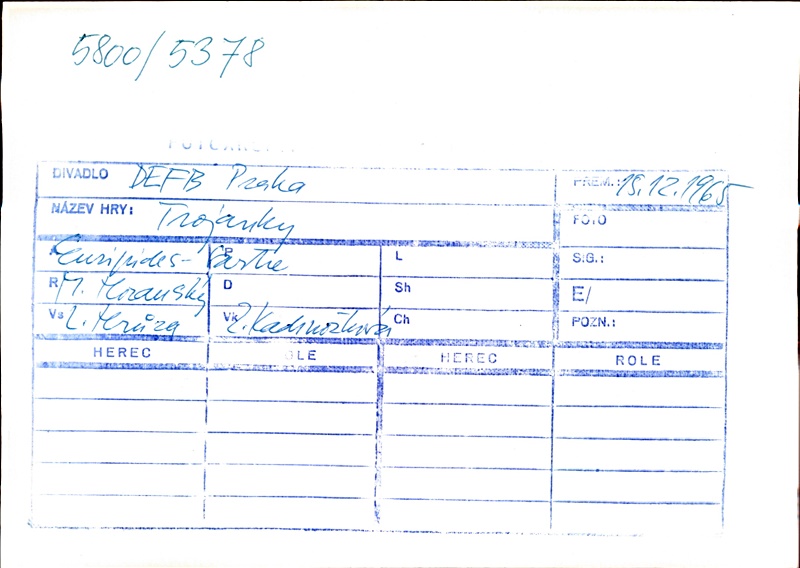 5800/5378
DIVADLO DEFB Praha PREM.: 15.12.1965
NÁZEV HRY: Trojanky FOTO
A Euripides- Sartre P L SIG.:
R M. Horanský D Sh E/
Vs L. Hrůza Vk Z. Kadrnožková Ch POZN.:
HEREC ROLE HEREC ROLE